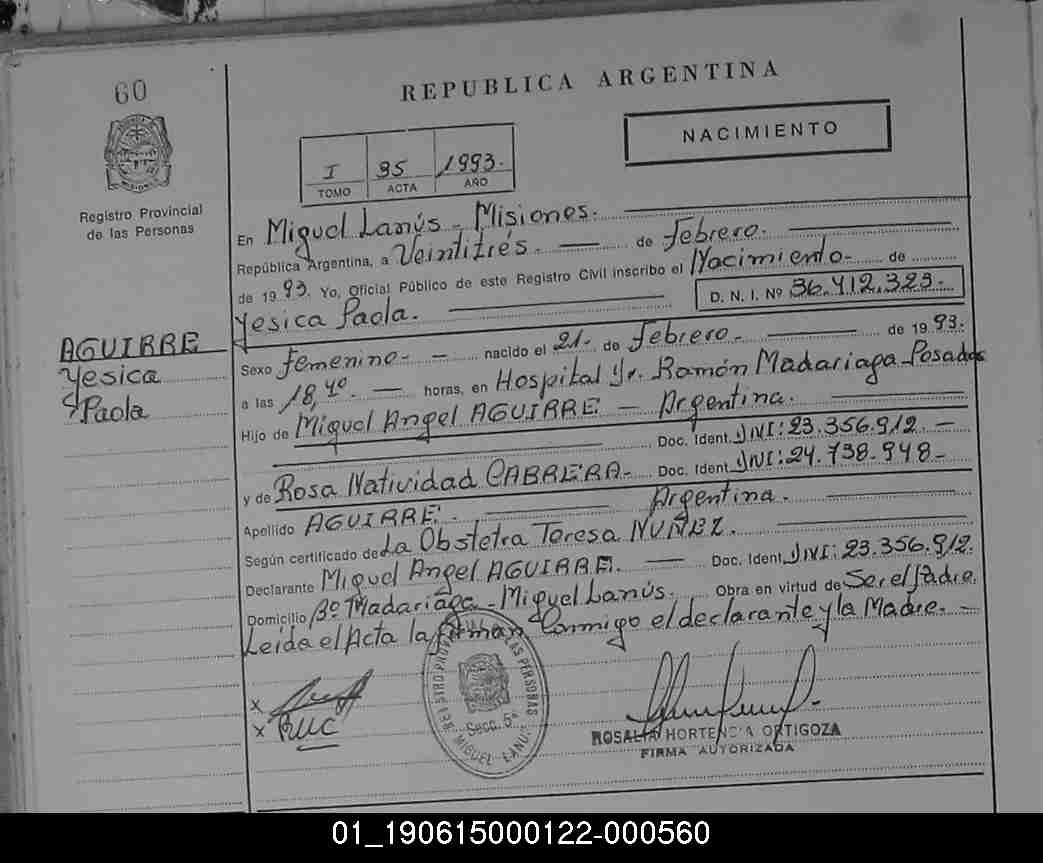 60
REPUBLICA ARGENTINA
NACIMIENTO
I 95 1993.
TOMO ACTA AÑO
Registro Provincial
de las Personas
En Miguel Lanús - Misiones.
República Argentina, a Veintitrés. de Febrero.
de 1993. Yo, Oficial Público de este Registro Civil inscribo el Nacimiento- de
Yesica Paola. D. N. I. Nº 36.412.323.
AGUIRRE
Yesica
Paola
Sexo Femenino- nacido el 21- de Febrero- de 1993.
a las 18,40. horas, en Hospital Dr. Ramón Madariaga-Posadas
Hijo de Miguel Angel AGUIRRE - Argentina.
Doc. Ident. DNI: 23.356.912.-
y de Rosa Natividad CABRERA- Doc. Ident. DNI: 24.738.948-
Apellido AGUIRRE. Argentina.
Según certificado de La Obstetra Teresa NUÑEZ.
Declarante Miguel Angel AGUIRRE. Doc. Ident. DNI: 23.356.912.
Domicilio Bº Madariaga - Miguel Lanús. Obra en virtud de Ser el Padre.
Leída el Acta la firman Conmigo el declarante y la Madre.-
REGISTRO PROVINCIAL DE LAS PERSONAS
Secc. 5ª
MIGUEL LANUS
x
x RNC
ROSALIA HORTENCIA ORTIGOZA
FIRMA AUTORIZADA
01_190615000122-000560